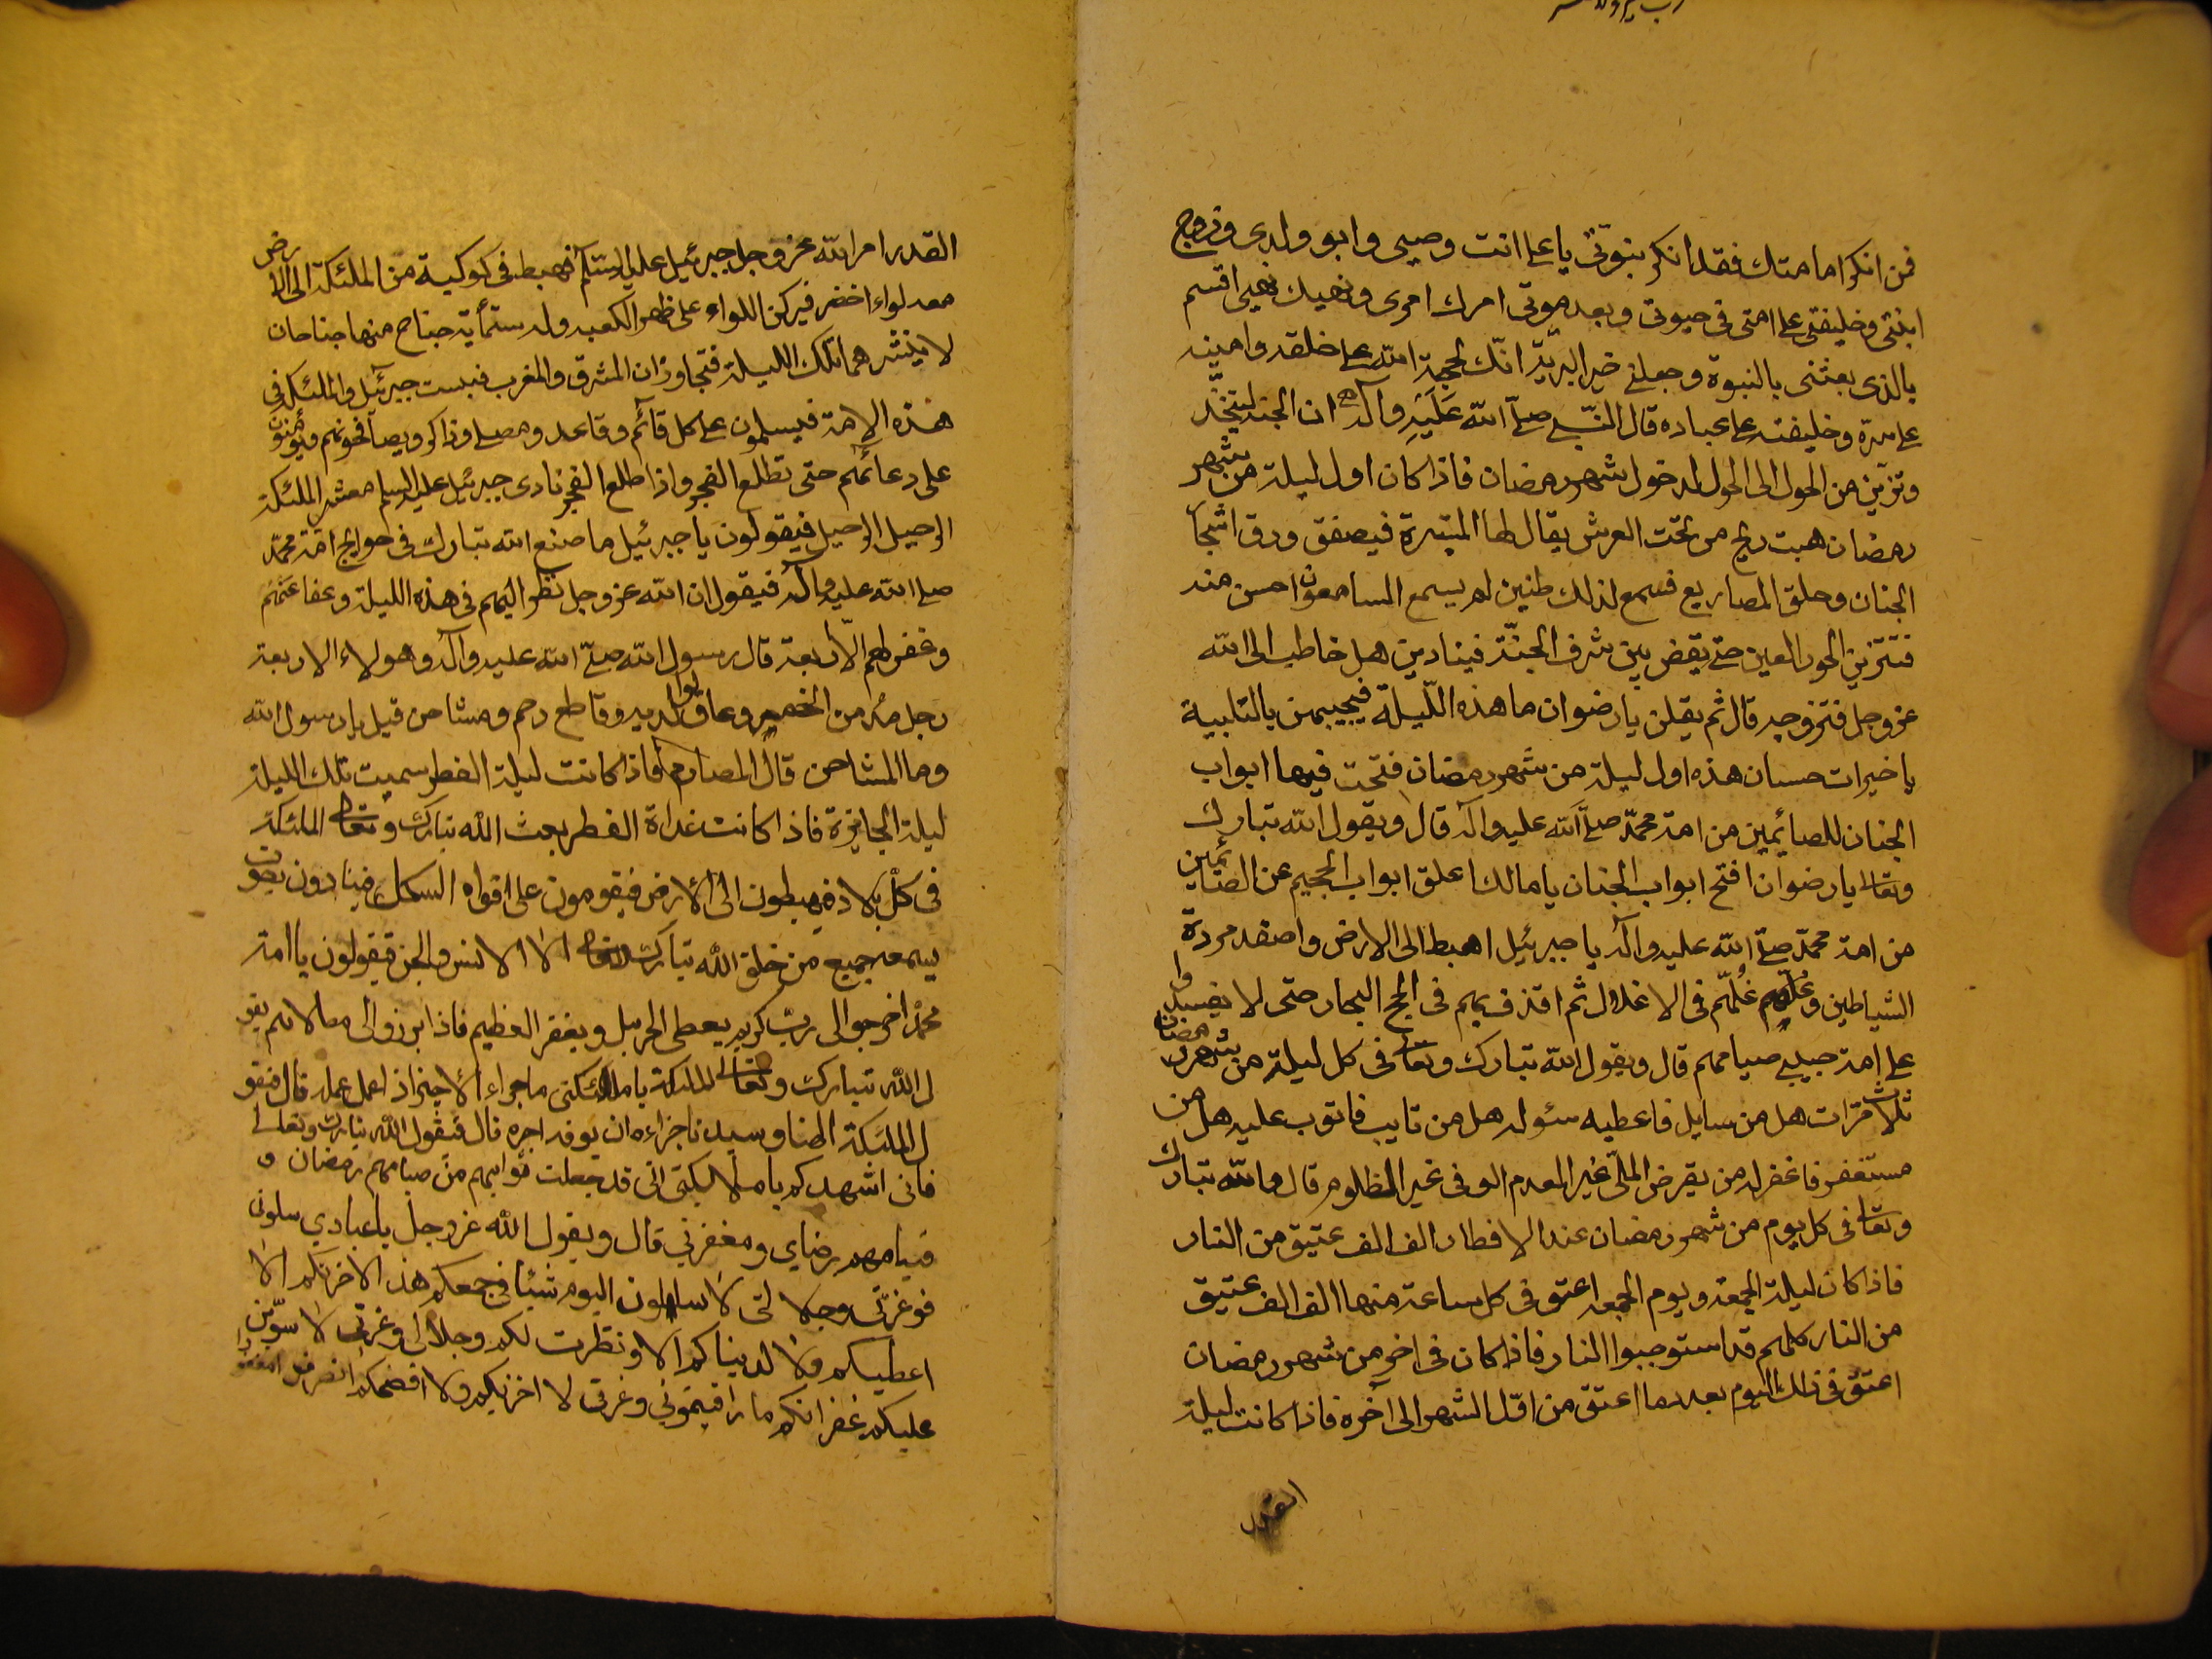 فمن انكر امامتك فقد انكر بنبوتى يا على انت وصيى وابو ولدى وزوج
ابنتى وخليفتى على امتى فى حيوتى وبعد موتى امرك امرى ونهيك نهيى اقسم
بالذى بعثنى بالنبوة وجعلنى خير البريّة انّك لحجة الله على خلقه وامينه
على سرّه وخليفته على عباده قال النّبى صلّى الله عَلَيْهِ وآله ان الجنه لتنجّد
وتزيّن من الحول الى الحول لدخول شهر رمضان فاذا كان اول ليلة من شهر
رمضان هبت ريح من تحت العرش يقال لها المثيرة فيصفق ورق اشجا
الجنان وحلق المصاريع فسمع لذلك طنين لم يسمع السامعون احسن منه
فتتزينّ الحور العين حتى يقض بين شرف الجنّة فينادين هل خاطب الى الله
عز وجل فتزوجه قال ثم يقلن يا رضوان ما هذه اللّيلة فيجيبهن بالتلبية
يا خيرات حسان هذه اول ليلة من شهر رمضان فتحت فيها ابواب
الجنان للصايمين من امة محمّد صلّى الله عليه وآله قال ويقول الله تبارك
وتعالى يا رضوان افتح ابواب الجنان يا مالك اغلق ابواب الجحيم عن الصّائمين
من امة محمّد صلّى الله عليه وآله يا جبرئيل اهبط الى الارض واصفد مردة
الشياطين وغلهم غُلّهم فى الاغلال ثم اقذف بهم فى لجج البحار حتى لا يفسدوا
على امة حبيبى صيامهم قال ويقول الله تبارك وتعالى فى كل ليلة من شهر رمضان
ثلاث مرّات هل من سايل فاعطيه سئوله هل من تايب فاتوب عليه هل من
مستغفر فاغفر له من يقرض الملّى غير المعدم الوفى غير المظلوم قال ولله تبارك
وتعالى فى كل يوم من شهر رمضان عند الافطار الف الف عتيق من النار
فاذا كان ليلة الجمعة ويوم الجمعه اعتق فى كل ساعة منها الف الف عتيق
من النار كلهم قد استوجبوا النار فاذا كان فى اخر من شهر رمضان
اعتق فى ذلك اليوم بعدد ما اعتق من اوّل الشهر الى آخره فاذا كانت ليلة
القدر
القدر امر الله عز وجل جبرئيل عليه السّلم فهبط فى كوكبة من الملئكة الى الارض
معه لواء اخضر فيركز اللواء على ظهر الكعبه وله ستمأية جناح منها جناحان
لا ينشرهما تلك الليلة فتجاوزان المشرق والمغرب فيبث جبرئيل والملئكه فى
هذه الامة فيسلمون على كل قآئم وقاعد ومصلى وذاكر ويصافحونهم ويؤمنون
على دعائهم حتى تطلع الفجر واذا طلع الفجر نادى جبرئيل عليه السلم معشر الملئكة
الرحيل الرحيل فيقولون يا جبرئيل ما صنع الله تبارك فى حوائج امة محمّد
صلى الله عليه وآله فيقول ان الله عز وجل نظر اليهم فى هذه الليلة وعفا عنهم
وغفر لهم الّا اربعة قال رسول الله صلّى الله عليه وآله وهولاء الاربعة
رجل مدمن الخمر وعاق لوالديه وقاطع رحم ومشاحن قيل يا رسول الله
وما المشاحن قال المصارم فاذا كانت ليلة الفطر سميت تلك الليلة
ليلة الجايزة فاذا كانت غداة الفطر بعث الله تبارك وتعالى الملئكة
فى كلّ بلاد فيهبطون الى الأرض فيقومون على افواه السكك فينادون بصوت
يسمعه جميع من خلق الله تبارك وتعالى الا الانس والجن فيقولون يا امة
محمّد اخرجوا الى ربّ كريم يعطى الجزيل ويغفر العظيم فاذا برزوا الى مصلاهم يقو
ل الله تبارك وتعالى للملئكة يا ملائكتى ما جزاء الأجير اذا عمل عمله قال فيقو
ل الملئكة الهنا وسيدنا جزاءه ان يوفه اجره قال فيقول الله تبارك وتعالى
فانى اشهدكم يا ملائكتى انى قد جعلت ثوابهم من صيامهم رمضان و
قيامهم رضاى ومغفرتي قال ويقول الله عز وجل يا عبادي سلونى
فوعزتى وجلالتى لا سالون اليوم شيئا فى جمعكم هذا لاخرتكم الا
اعطيكم ولا لدنياكم الا ونظرت لكم وجلالى وعزتى لاسترن
عليكم غفرانكم ما راقبتموني وعزتى لا اخزيكم ولا افضحكم انصرفوا مغفورا